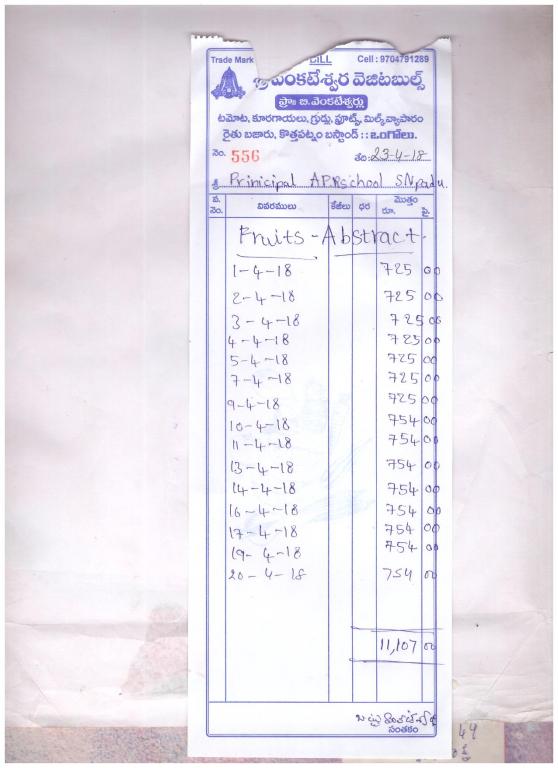 Trade Mark BILL Cell : 9704791289
శ్రీ వెంకటేశ్వర వెజిటబుల్స్
ప్రొః బి.వెంకటేశ్వర్లు
టమోట, కూరగాయలు, గ్రుడ్లు, ఫ్రూట్స్, మిల్క్‌వ్యాపారం
రైతు బజారు, కొత్తపట్నం బస్టాండ్ : : ఒంగోలు.
నెం. 556 తేది: 23-4-18
శ్రీ Prinicipal A.P.R.school S.N.padu.
వ. నెం. వివరములు కేజీలు ధర మొత్తం రూ. పై.
Fruits - Abstract -
1-4-18 725 00
2-4-18 725 00
3-4-18 725 00
4-4-18 725 00
5-4-18 725 00
7-4-18 725 00
9-4-18 725 00
10-4-18 754 00
11-4-18 754 00
13-4-18 754 00
14-4-18 754 00
16-4-18 754 00
17-4-18 754 00
19-4-18 754 00
20-4-18 754 00
11,107 00
సంతకం